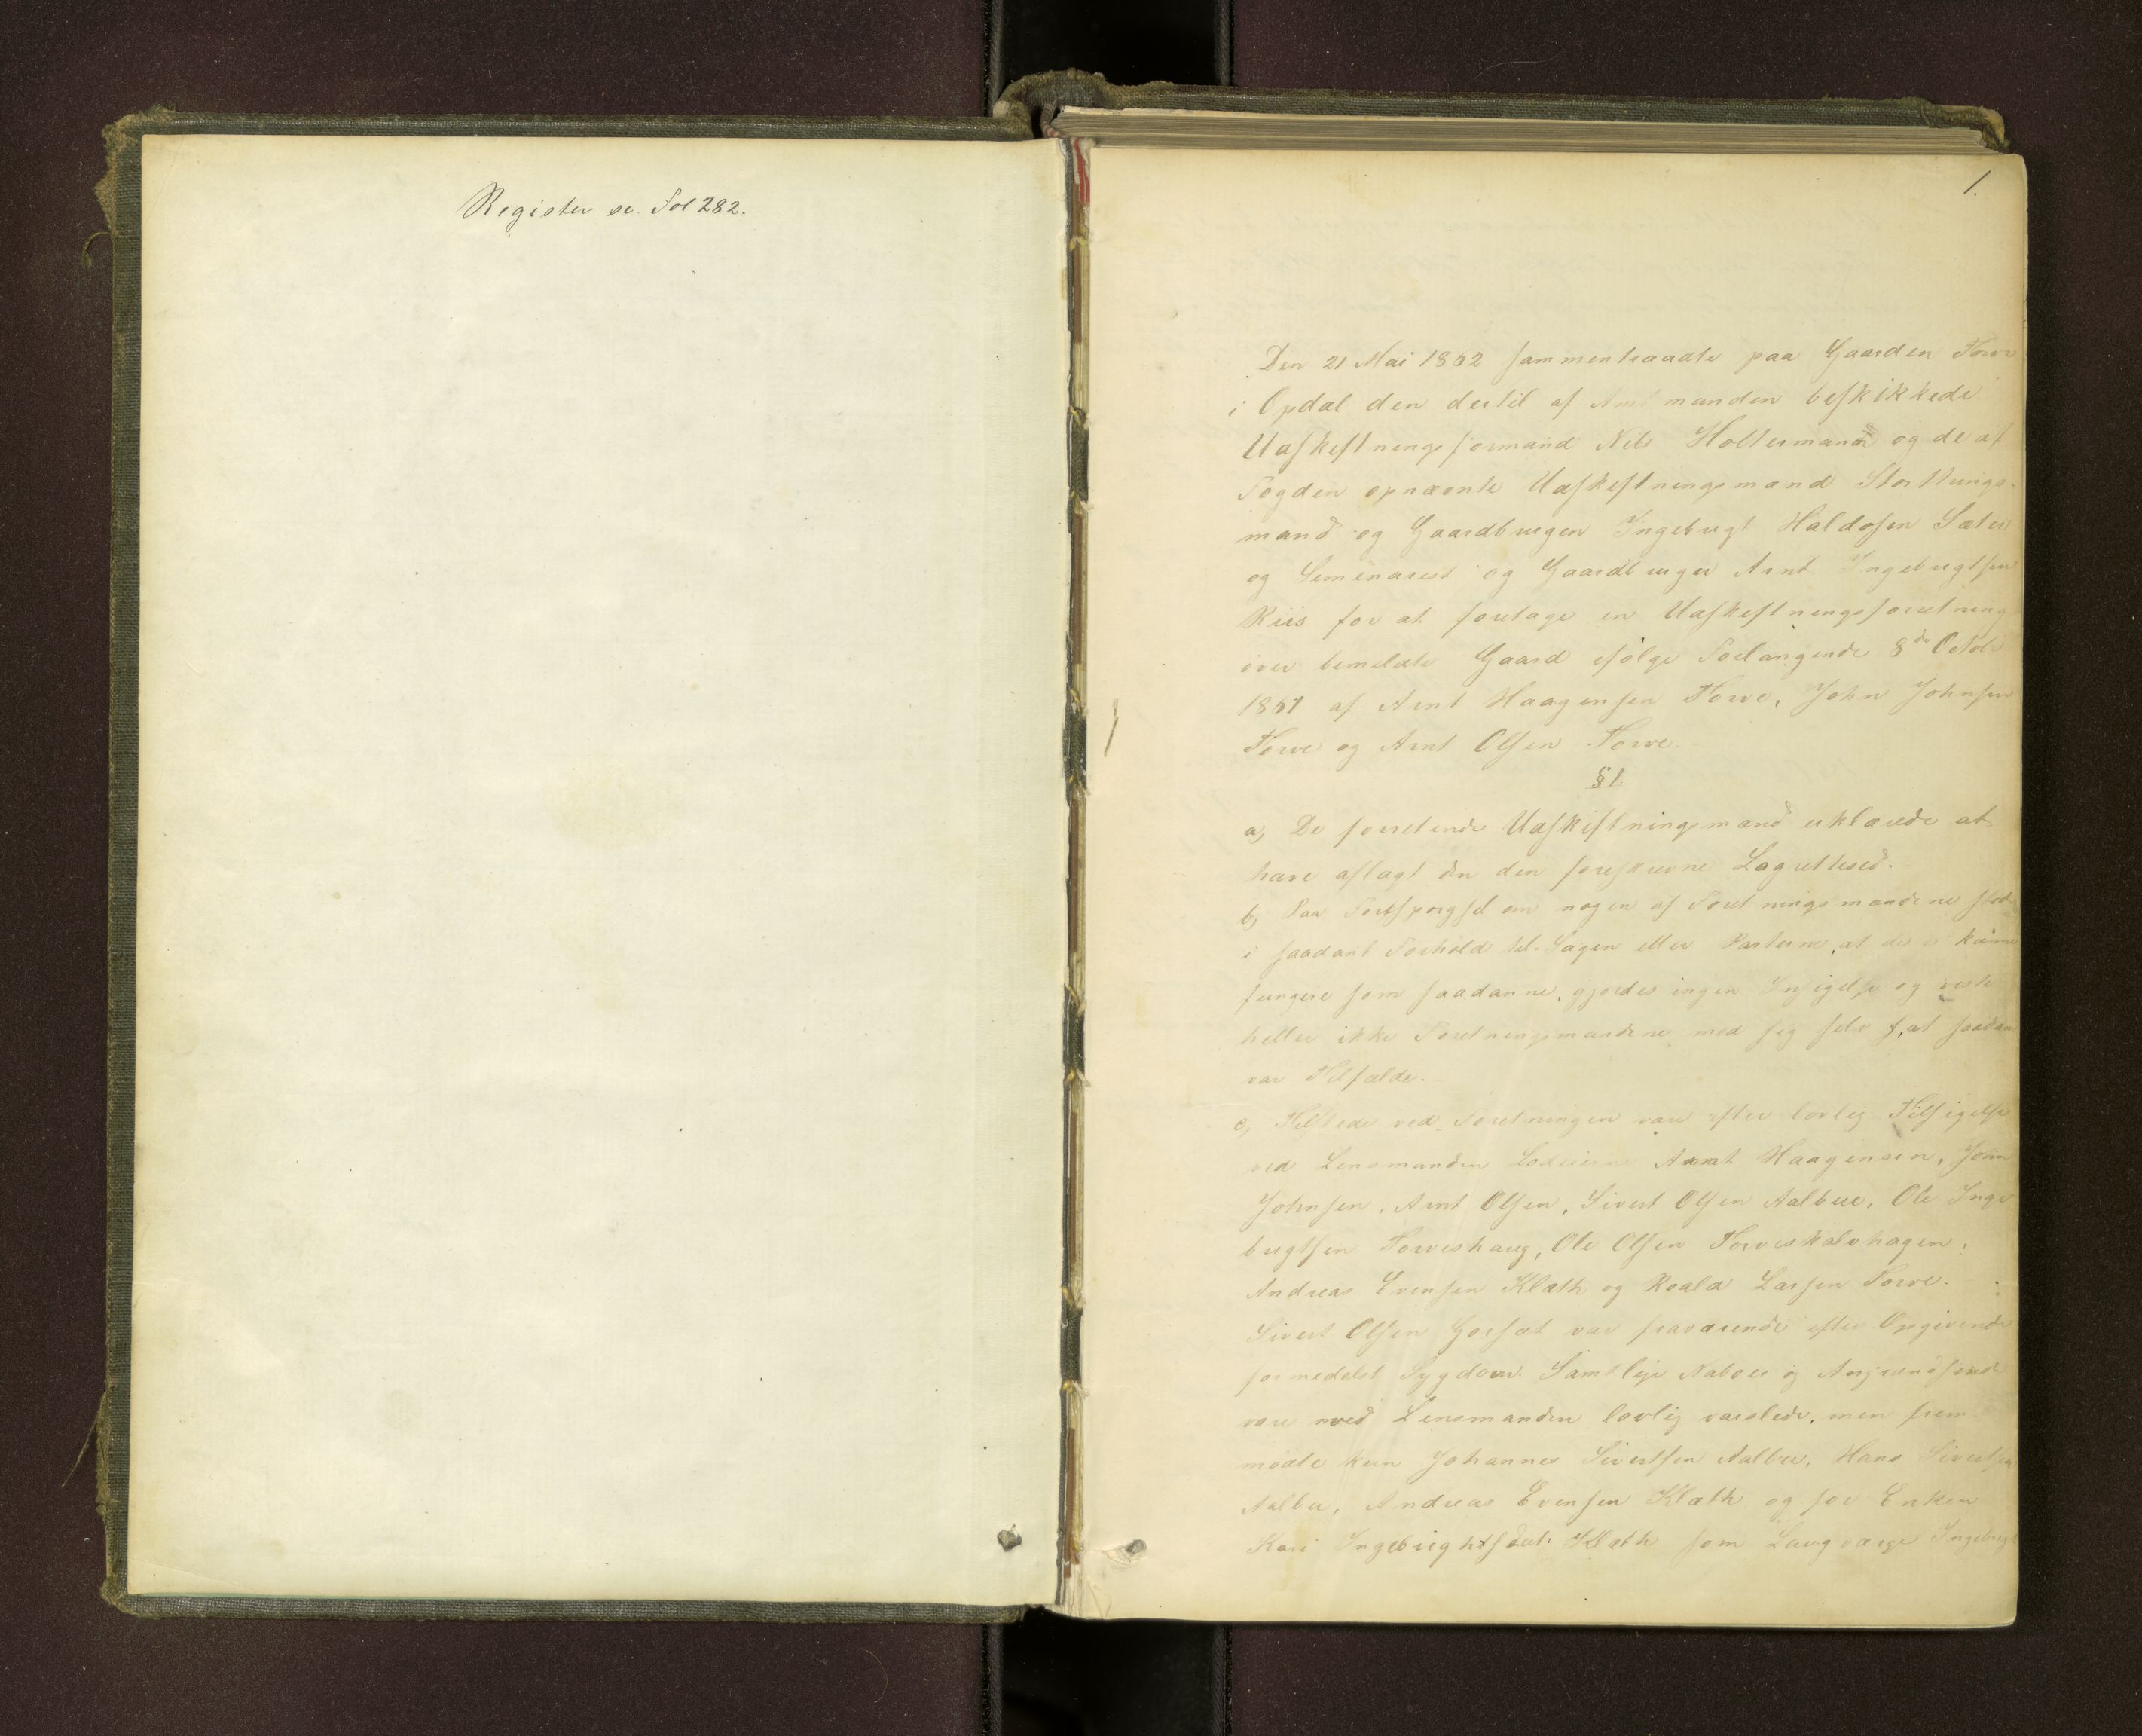 Register se. Fol 282.
1.
Den 21 Mai 1862 sammentraadte paa Gaarden Torve
i Opdal den dertil af Amtmanden beskikkede
Udskiftningsformand Nils Holtermann og de af
Fogden opnævnte Udskiftningsmænd Storthings-
mand og Gaardbruger Ingebrigt Haldosen Sæter
og Seminarist og Gaardbruger Arnt Ingebrigtsen
Riis for at foretage en Udskiftningsforretning
over bemeldte Gaard ifølge Forlangende 8de Octobr
1861 af Arnt Haagensen Torve, John Johnsen
Torve og Arnt Olsen Torve.
§ 1
a, De forretende Udskiftningsmænd erklærede at
have aflagt den den foreskrevne Lagrettesed.
b, Paa Forespørgsel om nogen af Forretningsmændene stod
i saadant Forhold til Sagen eller Parterne, at de ei kunne
fungere som saadanne, gjordes ingen Indsigelse og vidste
heller ikke Forretningsmændene med sig selv, at saadan
var Tilfælde.
c, Tilstede ved Forretningen vare efter lovlig Tilsigelse
ved Lensmanden Lodeierne Arnt Haagensen, John
Johnsen, Arnt Olsen, Sivert Olsen Aalbue, Ole Inge
brigtsen Torveshaug, Ole Olsen Torveskalvhagen,
Andreas Evensen Klæth og Roald Larsen Torve.
Sivert Olsen Gorsæt var fraværende efter Opgivende
formedelst Sygdom. Samtlige Naboer og
vare ved Lensmanden lovlig varslede, men frem
mødte kun Johannes Sivertsen Aalbue, Hans Sivertsen
Aalbu, Andreas Evensen Klæth og for Enken
Kari Ingebrightsdatr Klæth som Laugværge Ingebrigt